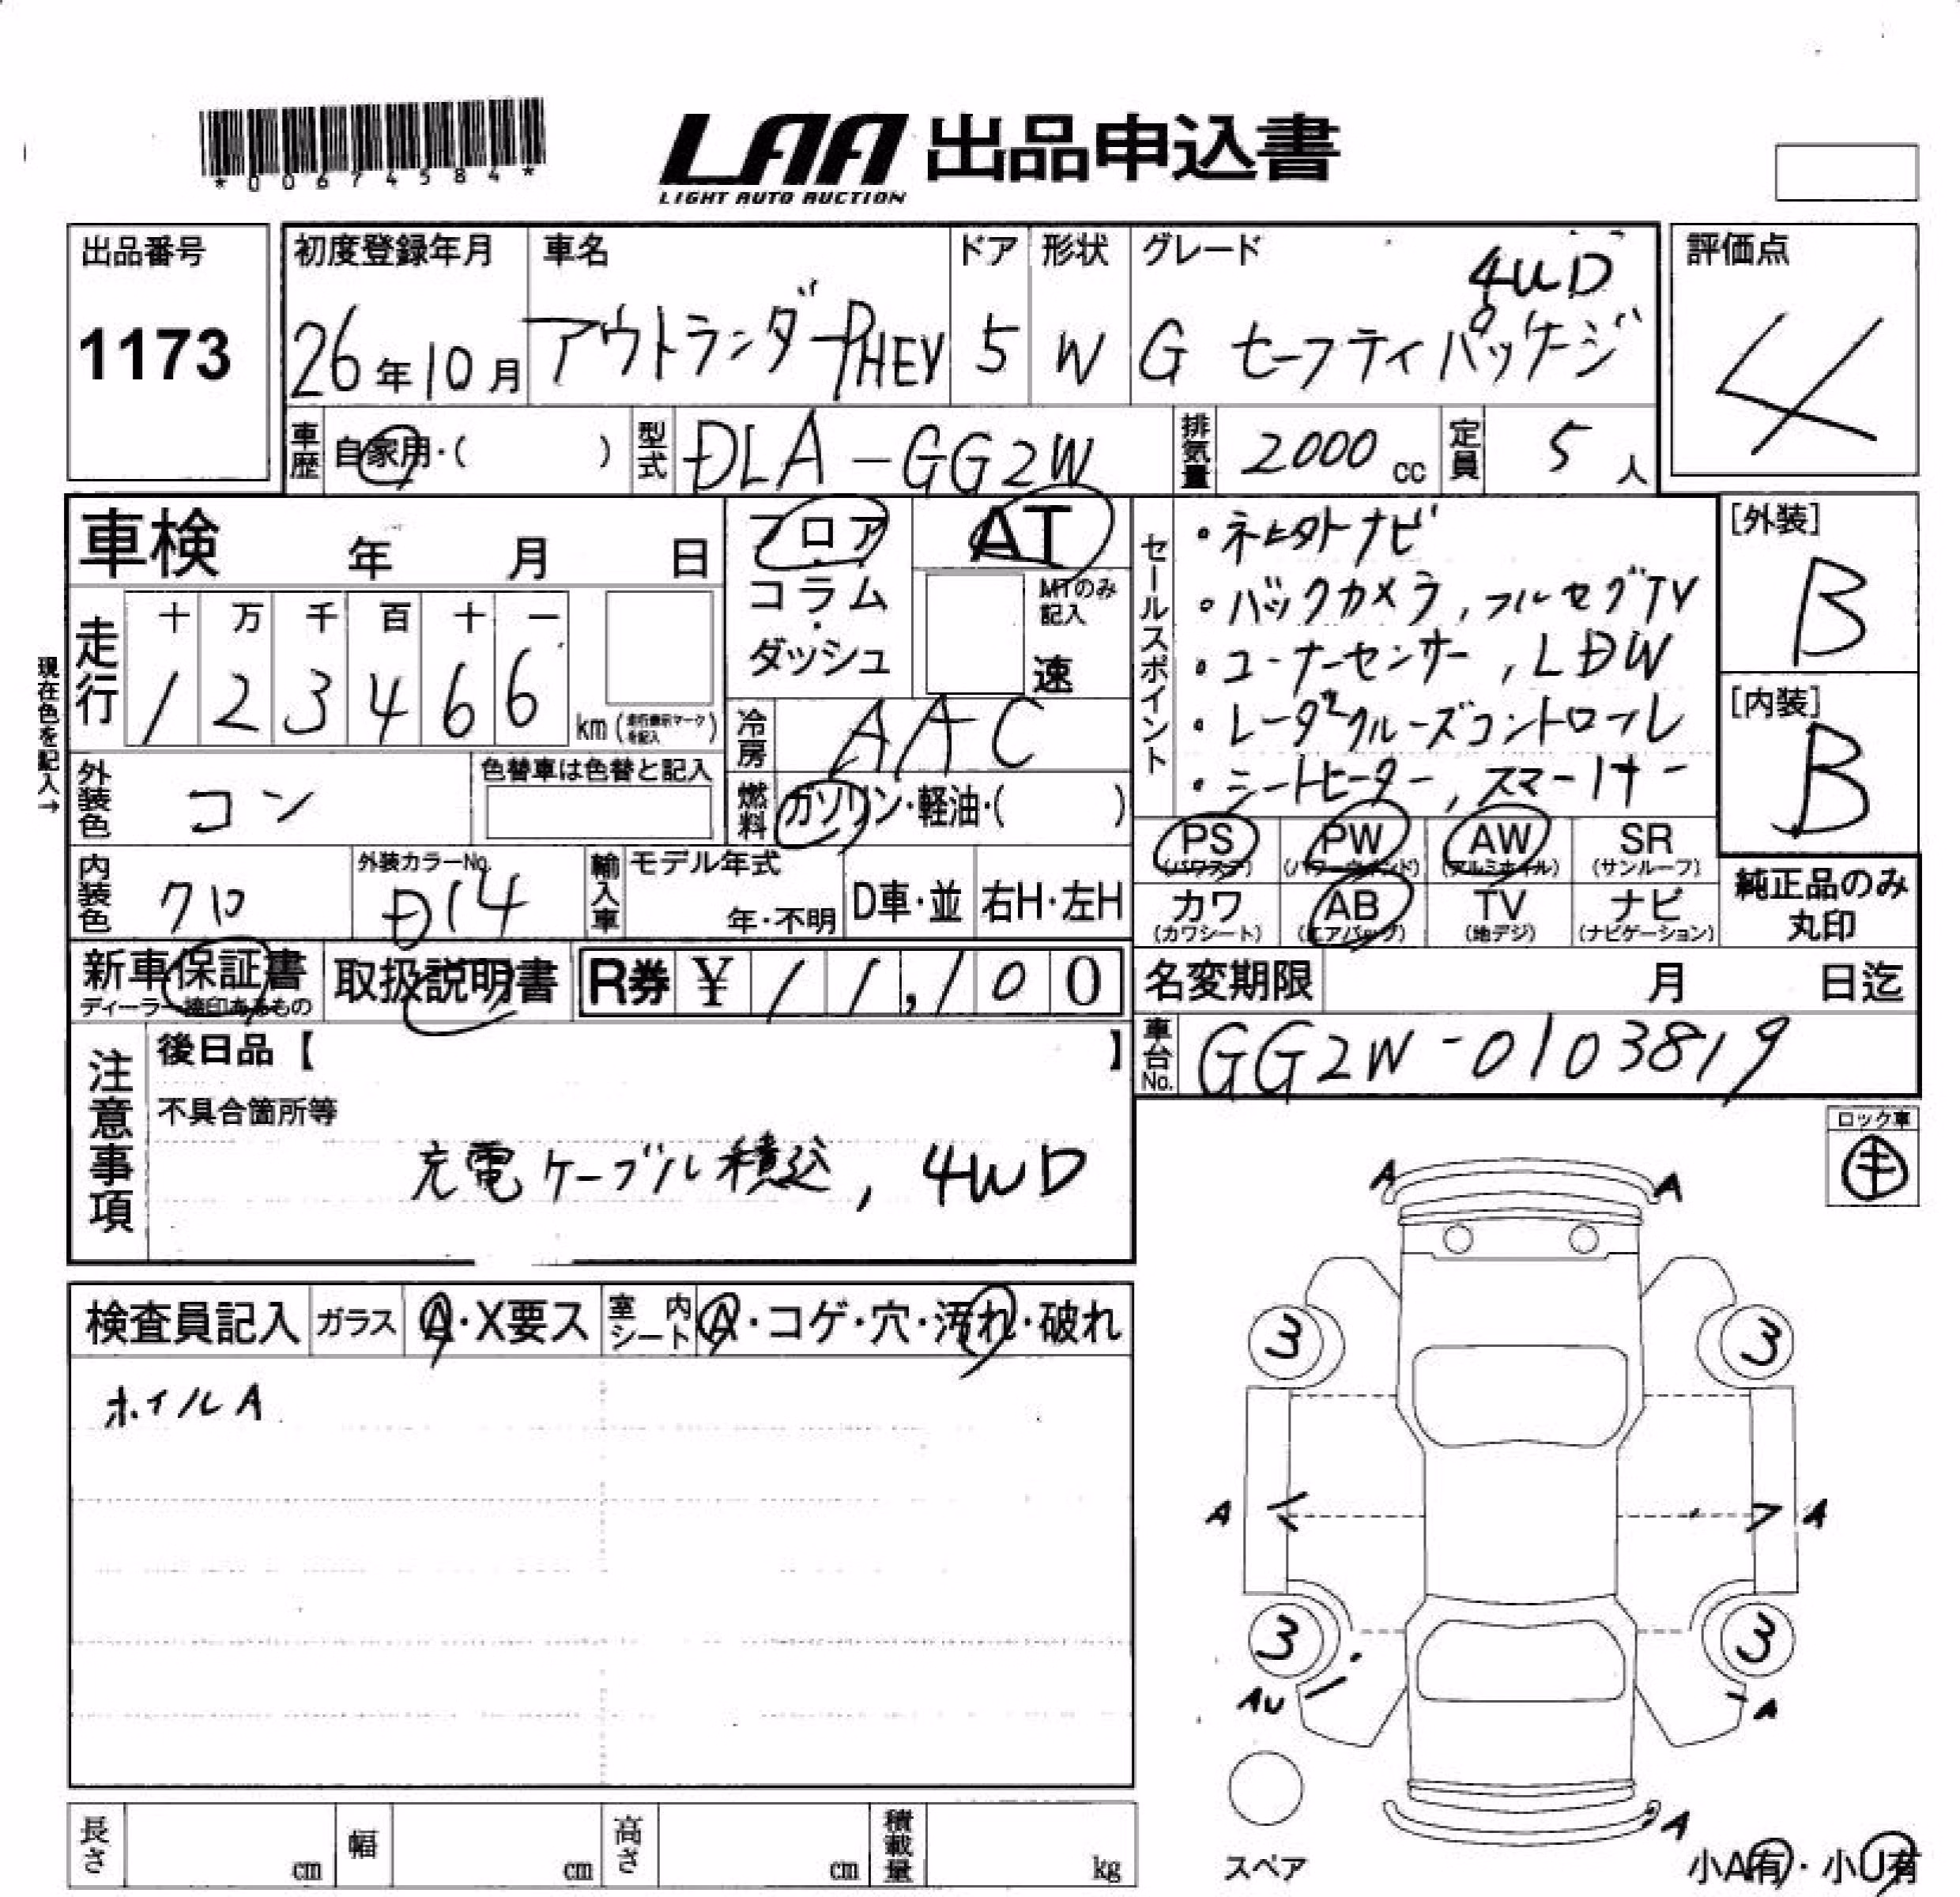 *00674584*
LAA 出品申込書
LIGHT AUTO AUCTION
出品番号
1173
初度登録年月
26年10月
車名
アウトランダーPHEV
ドア
5
形状
W
グレード
4WD
G セーフティパッケージ
評価点
4
車歴 自家用・( )
型式 DLA-GG2W
排気量 2000 cc
定員 5 人
車検 年 月 日
フロア・コラム・ダッシュ
AT
MTのみ記入
速
セールスポイント
・バックカメラ,フルセグTV
・コーナーセンサー,LDW
・レーダークルーズコントロール
・シートヒーター,スマートキー
[外装]
B
[内装]
B
現在色を記入→
走行
十 万 千 百 十 一
1 2 3 4 6 6
km(走行表示マークを記入)
冷房 AAC
燃料 ガソリン・軽油・( )
外装色 コン
色替車は色替と記入
PS (パワステ)
PW (パワーウィンド)
AW (アルミホイル)
SR (サンルーフ)
カワ (カワシート)
AB (エアバッグ)
TV (地デジ)
ナビ (ナビゲーション)
純正品のみ丸印
内装色 クロ
外装カラーNo.
D14
輸入車
モデル年式
年・不明
D車・並
右H・左H
新車保証書
ディーラー捺印あるもの
取扱説明書
R券 ¥ 11,100
名変期限 月 日迄
車台No. GG2W-0103819
注意事項
後日品【 】
不具合箇所等
充電ケーブル積込, 4WD
ロック車
キ
検査員記入
ガラス A・X要ス
室内シート A・コゲ・穴・汚れ・破れ
ホイルA
A A
3 3
A A
3 3
AU A
A
スペア
小A有・小U有
長さ cm
幅 cm
高さ cm
積載量 kg